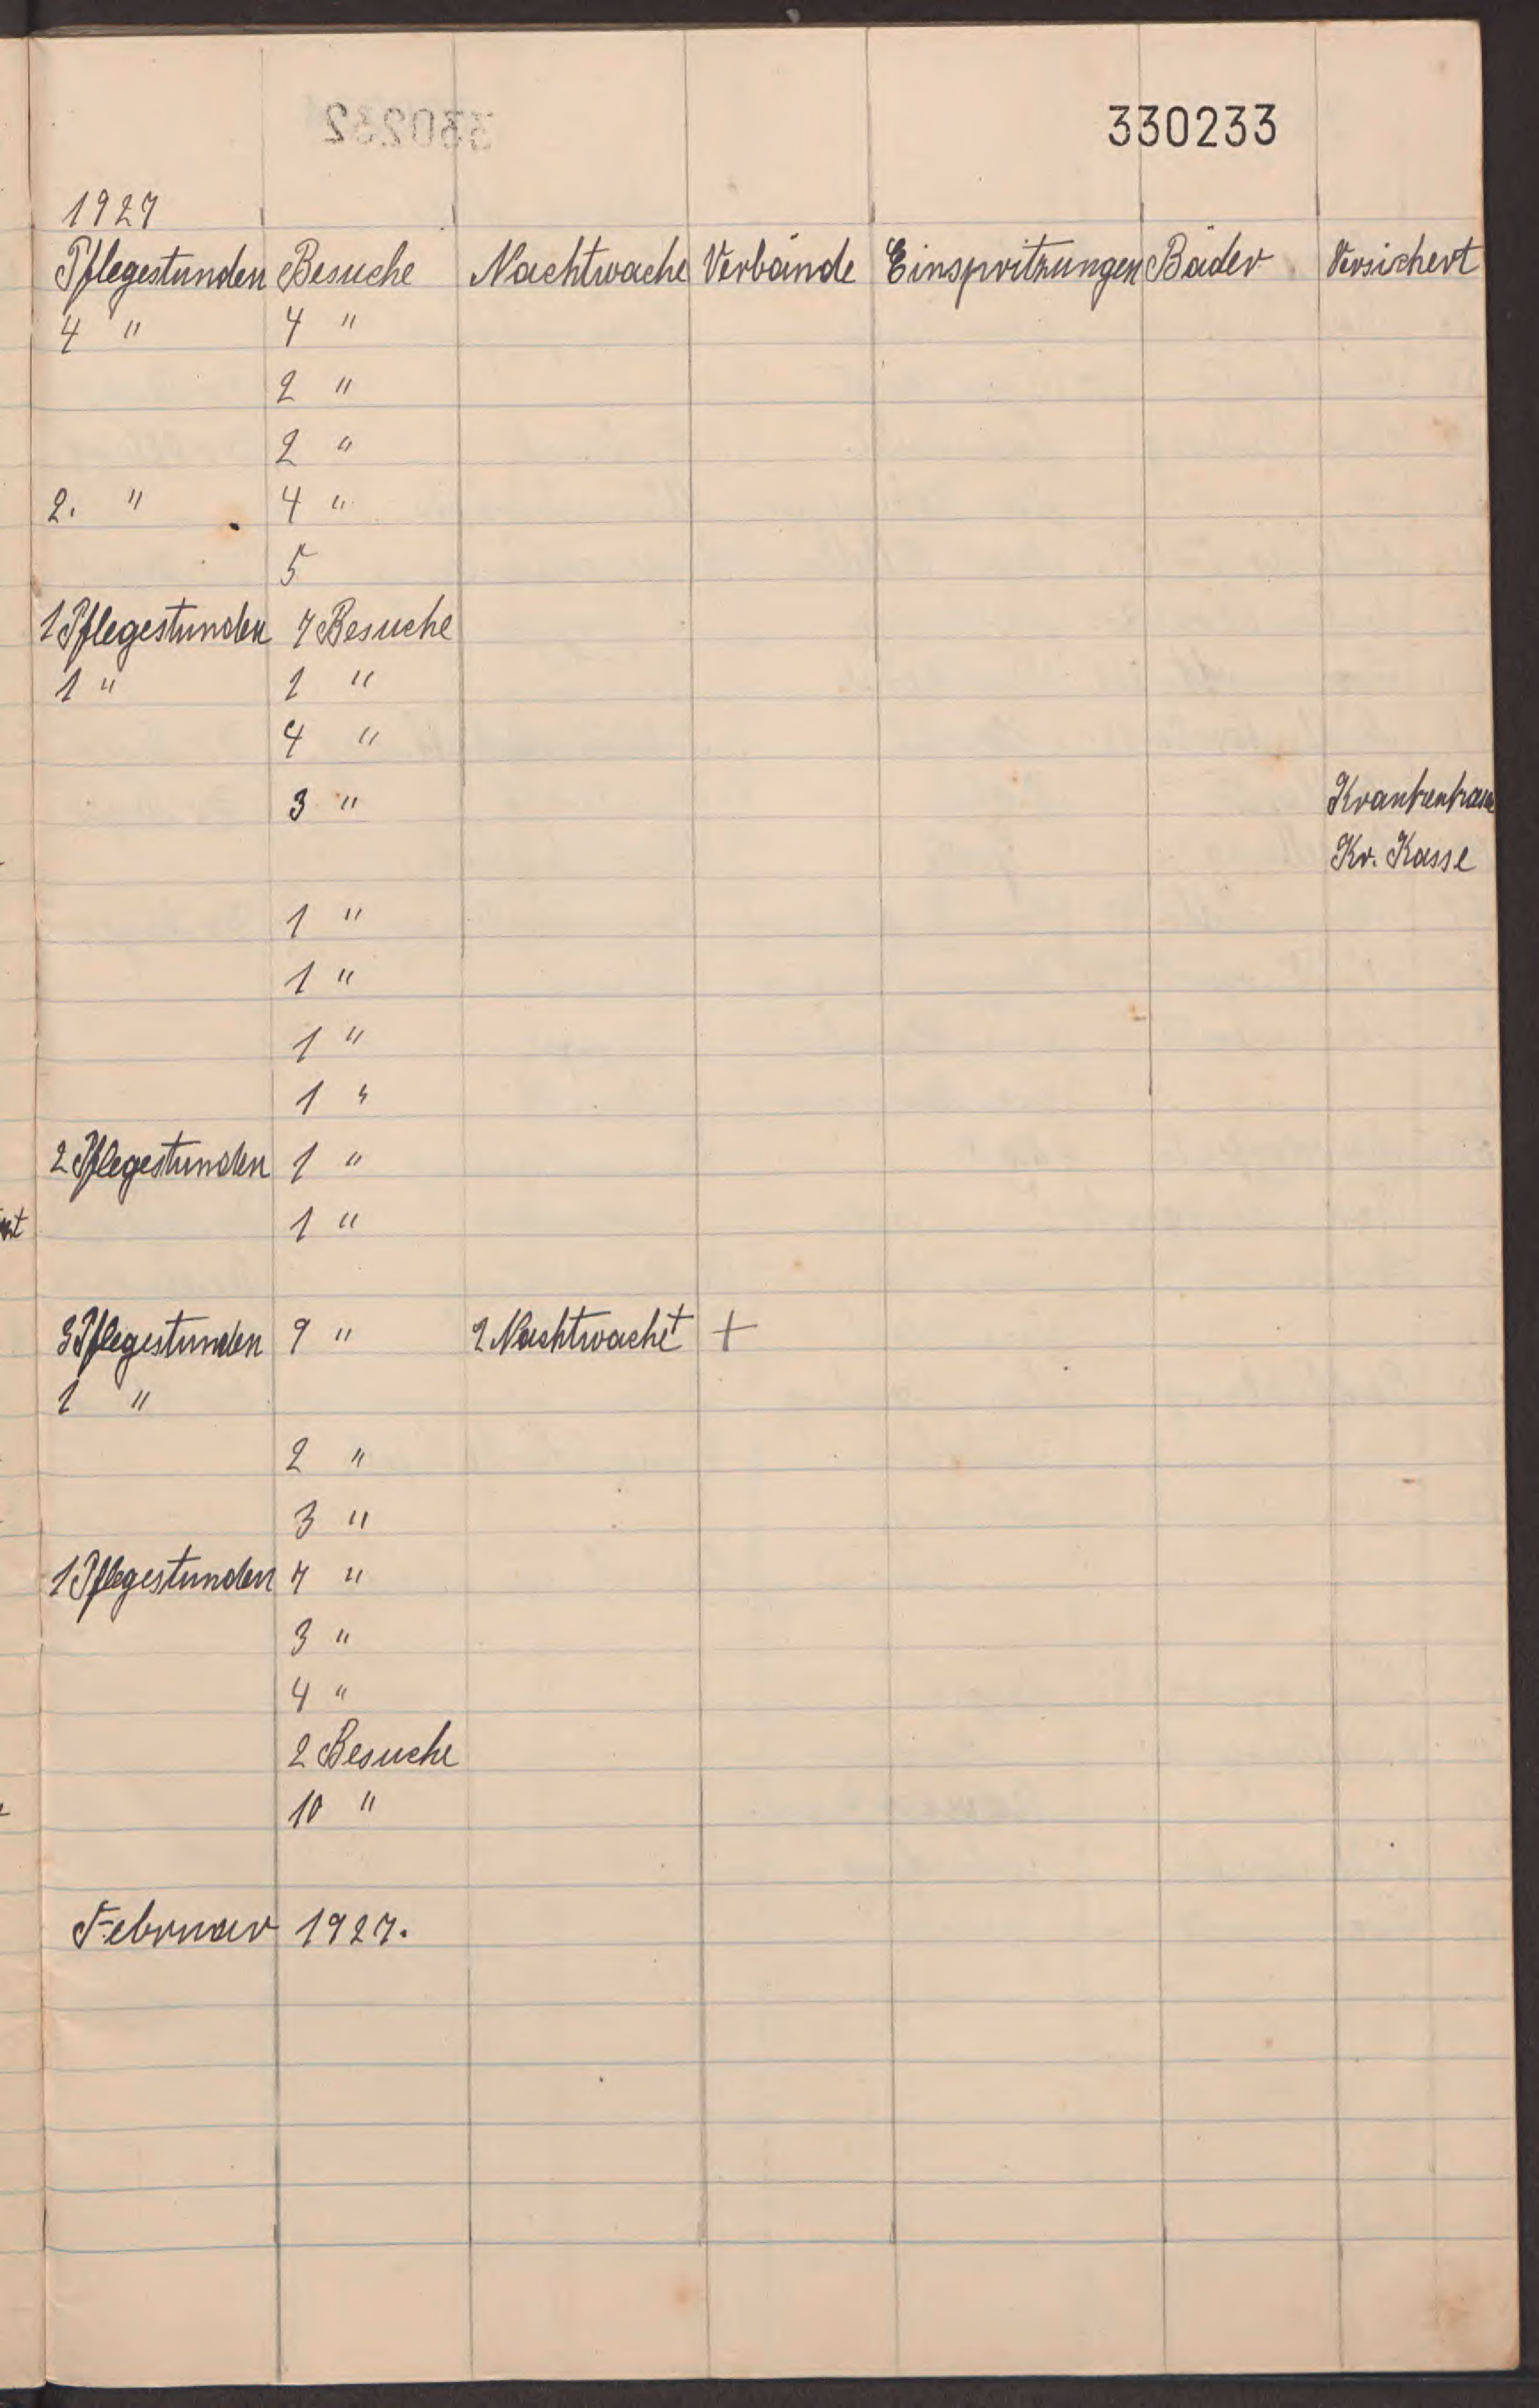 330233
1927
Pflegestunden Besuche Nachtwache Verbände Einspritzungen Bäder Versichert
4 " 4 "
2 "
2 "
2. " 4 "
5
1 Pflegestunden 7 Besuche
1 " 1 "
4 "
3 " Krankenkasse
Kr. Kasse
1 "
1 "
1 "
1 "
2 Pflegestunden 1 "
1 "
3 Pflegestunden 9 " 2 Nachtwache + +
1 "
2 "
3 "
1 Pflegestunden 7 "
3 "
4 "
2 Besuche
10 "
Februar 1927.